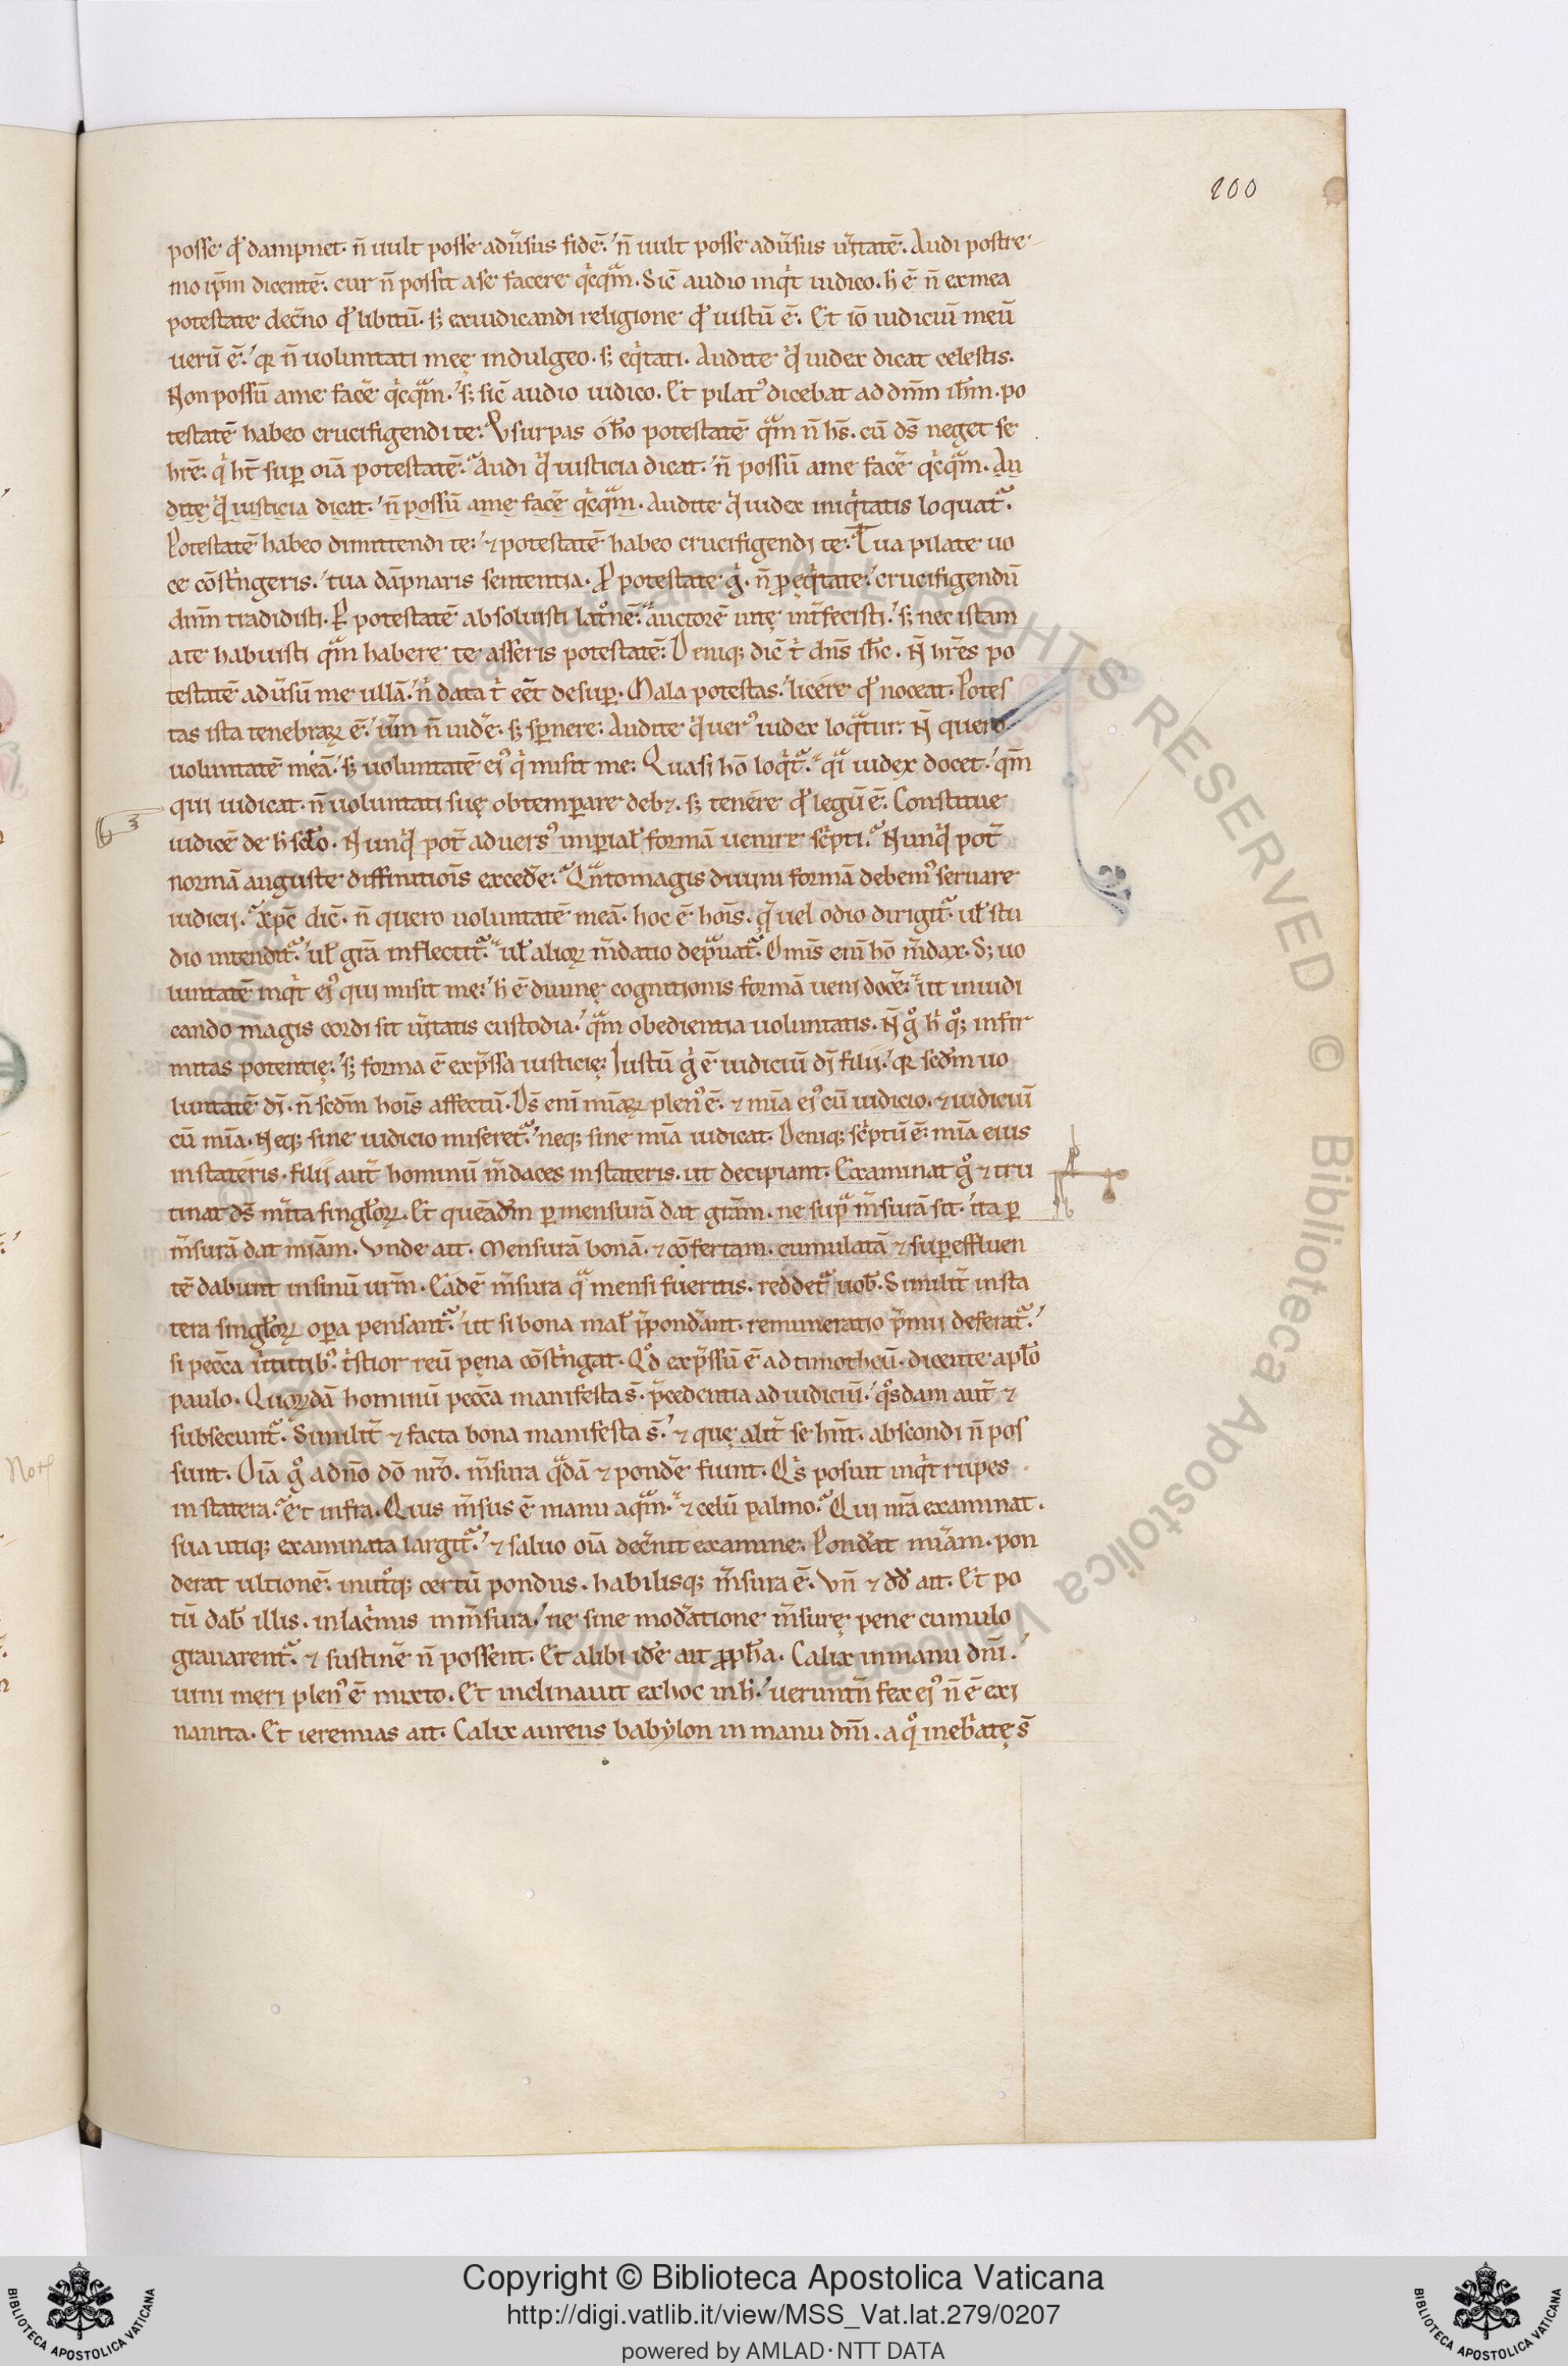 200
posse qđ dampnet. n̄ uult posse adũsus fidē. n̄ uult posse adũsus ũitatē. Audi postre
mo ip̄m dicentē. cur n̄ possit a se facere qͥcqͣm. Sic̄ audio inqͥt iudico. h̄ ē n̄ ex mea
potestate dec̃no qđ libitū. sꝫ ex iudicandi religione qđ iustū ē. Et iō iudiciū meū
uerū ē. qꝛ n̄ uoluntati meę indulgeo. sꝫ eqͥtati. Audite qͥd iudex dicat celestis.
Non possū a me fac̃e qͥcqͣm. sꝫ sic̄ audio iudico. Et pilatꝰ dicebat ad dn̄m ih̄m. po
testatē habeo crucifigendi te. Vsurpas o hō potestatē qͣm n̄ hs̄. cū ds̄ neget se
hr̄e. qͥ ht̄ suꝑ oīa potestatē. Audi qͥd iusticia dicat. n̄ possū a me fac̃e qͥcqͣm. Au
dite qͥd iusticia dicat. n̄ possū a me fac̃e qͥcqͣm. Audite qͥd iudex iniqͥtatis loquat᷑.
Potestatē habeo dimittendi te. ⁊ potestatē habeo crucifigendi te. Tua pilate uo
ce cōstͥngeris. tua dāpnaris sententia. Ꝑ potestate gͥ. n̄ ꝓ eqͥtate. crucifigendū
dn̄m tradidisti. Ꝑ potestatē absoluisti latͦnē. auctorē uitę int̃fecisti. sꝫ nec istam
a te habuisti qͣm habere te asseris potestatē. Deniqꝫ dic̄ tͥ dn̄s ih̄c. N̄ hr̄es po
testatē adũsū me ullā. nͥ data tͥ eēt desuꝑ. Mala potestas. licere qđ noceat. Potes
tas ista tenebraꝝ ē. ũm n̄ uid̃e. sꝫ sꝑnere. Audite qͥd uerꝰ iudex loqͣtur. N̄ quero
uoluntatē meā. sꝫ uoluntatē eiꝰ qͥ misit me. Quasi hō loqͥt᷑. qͣi iudex docet. qm̄
qui iudicat. n̄ uoluntati suę obtemꝑare debꝫ. sꝫ tenere qđ legū ē. Constitue
iudicē de h̄ sc̄lo. Nunqͥd pot̃ aduersꝰ imꝑial̄ formā uenire scͥpti. Nunqͥd pot̃
normā auguste diffinitiōis exced̃e. Qͣntomagis diuini formā debemꝰ seruare
iudicij. xp̄c dic̄. n̄ quero uoluntatē meā. hoc ē hoīs. qͥ uel odio dirigit᷑. ul̄ stu
dio intendit᷑. ul̄ grā inflectit᷑. ul̄ alioꝝ m̄datio depͣuat᷑. Omīs eni hō m̄dax. Sꝫ uo
luntatē inqͥt eiꝰ qui misit me. h̄ ē diuinę cognitionis formā ueni doc̃e. ut in iudi
cando magis cordi sit ũitatis custodia. qͣm obedientia uoluntatis. N̄ gͦ h̄ qͦqꝫ infir
mitas potentię. sꝫ forma ē exp̃ssa iusticię. Iustū gͥ ē iudiciū dī filii. qꝛ sed̄m uo
luntatē dī. n̄ scd̄m hoīs affectū. Ds̄ eni mīaꝝ plenꝰ ē. ⁊ mīa eiꝰ cū iudicio. ⁊ iudiciū
cū mīa. Neqꝫ sine iudicio miseret᷑. neqꝫ sine mīa iudicat. Deniqꝫ scͥptū ē. mīa eius
in stateris. filii aut̃ hominū m̄daces in stateris. ut decipiant. Examinat gͦ ⁊ tru
tinat ds̄ m̃ita singl̄oꝝ. Et queād̄m ꝑ mensurā dat grām. ne supͣ m̄surā sit. ita ꝑ
m̄surā dat miām. Vnde ait. Mensurā bonā. ⁊ cōfertam. cumulatā ⁊ suꝑeffluen
tē dabunt in sinū ur̄m. Eadē m̄sura qͣ mensi fueritis. reddet᷑ uob̄. Similit̃ in sta
tera singl̄oꝝ oꝑa pensant᷑. ut si bona mal̄ p̃pond̃ant. remuneratio p̃mii deferat᷑.
si pecc̄a ũtutibꝰ. tͥstior reū pęna cōstͥngat. Qͦd exp̃ssū ē ad timotheū. dicente apl̄o
paulo. Quoꝝdā hominū pecc̄a manifesta s̄. p̃cedentia ad iudiciū. qͦsdam aut̃ ⁊
subsecunt᷑. Similit̃ ⁊ facta bona manifesta s̄. ⁊ quę alit̃ se hn̄t. abscondi n̄ pos
sunt. Oīa gͦ a dn̄o dō nr̄o. m̄sura qͣdā ⁊ pond̃e fiunt. Qͥs posuit inqͥt rupes
in statera. Et infra. Quis m̄sus ē manu aqͣm. ⁊ celū palmo. Qui mīa examinat.
sua utiqꝫ examinata largit᷑. ⁊ saluo oīa dec̃nit examine. Pond̃at miām. pon
derat ultionē. in utͦqꝫ certū pondus. habilisqꝫ m̄sura ē. Vn̄ ⁊ dd̄ ait. Et po
tū dab̄ illis. in lac̃mis in m̄sura. ne sine mod̃atione m̄surę pene cumulo
grauarent᷑. ⁊ sustin̄e n̄ possent. Et alibi idē ait ꝓph̄a. Calix in manu dn̄i.
uini meri plenꝰ ē mixto. Et inclinauit ex hoc in h̄. ueruntn̄ fex eiꝰ n̄ ē exi
nanita. Et ieremias ait. Calix aureus babẏlon in manu dn̄i. a qͦ inebͥatę s̄
Copyright © Biblioteca Apostolica Vaticana
http://digi.vatlib.it/view/MSS_Vat.lat.279/0207
powered by AMLAD·NTT DATA